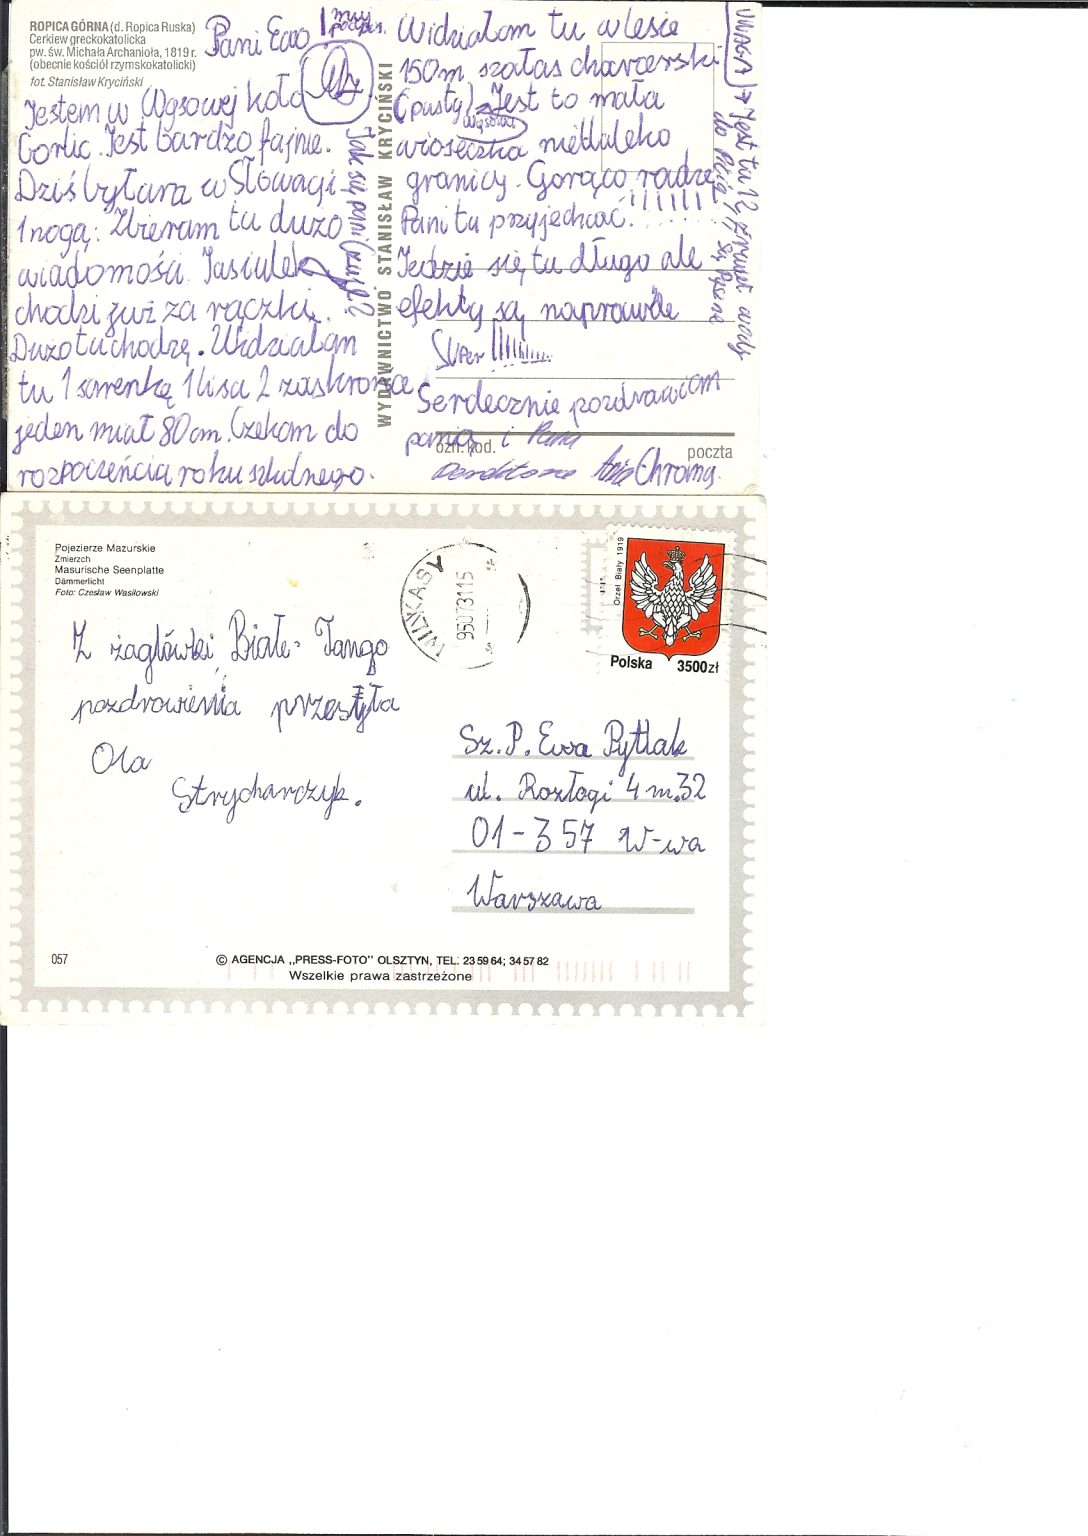 ROPICA GÓRNA (d. Ropica Ruska)
Cerkiew greckokatolicka
pw. św. Michała Archanioła, 1819 r.
(obecnie kościół rzymskokatolicki)
fot. Stanisław Kryciński
Pani Ewo
muj
podpis.
Jestem w Wysowej koło
Gorlic. Jest bardzo fajnie.
Dziś byłam w Słowacji
1 nogą. Zbieram tu dużo
wiadomości. Jasiulek
chodzi już za rączki.
Dużo tu chodzę. Widziałam
tu 1 sarenkę 1 lisa 2 zaskrońce
jeden miał 80 cm. Czekam do
rozpoczęcia roku szkolnego.
Jak są pani
WYDAWNICTWO STANISŁAW KRYCIŃSKI
Widziałam tu w lesie
150 m szałas
(pusty) Jest to mała
Wysowa
wioseczka niedaleko
granicy. Gorąco radzę
Pani tu przyjechać! !!!!!!!
Jedzie się tu długo ale
efekty są naprawde
super !!!!!!!!...
Serdecznie pozdrawiam
panią i Pana
Ania Chroma.
ozn. kod.
poczta
UWAGA
Jest tu 12 źrudeł wody
do picia, są pyszne
Pojezierze Mazurskie
Zmierzch
Masurische Seenplatte
Dämmerlicht
Foto: Czesław Wasilowski
MIŁKASY
95073115
Orzeł Biały 1919
Polska 3500zł
Z żaglówki Białe-Tango
pozdrowienia przesyła
Ola
Strycharczyk.
Sz. P. Ewa Pytlak
ul. Rozłogi 4 m.32
01-357 W-wa
Warszawa
057
© AGENCJA ,,PRESS-FOTO" OLSZTYN, TEL: 23 59 64; 34 57 82
Wszelkie prawa zastrzeżone